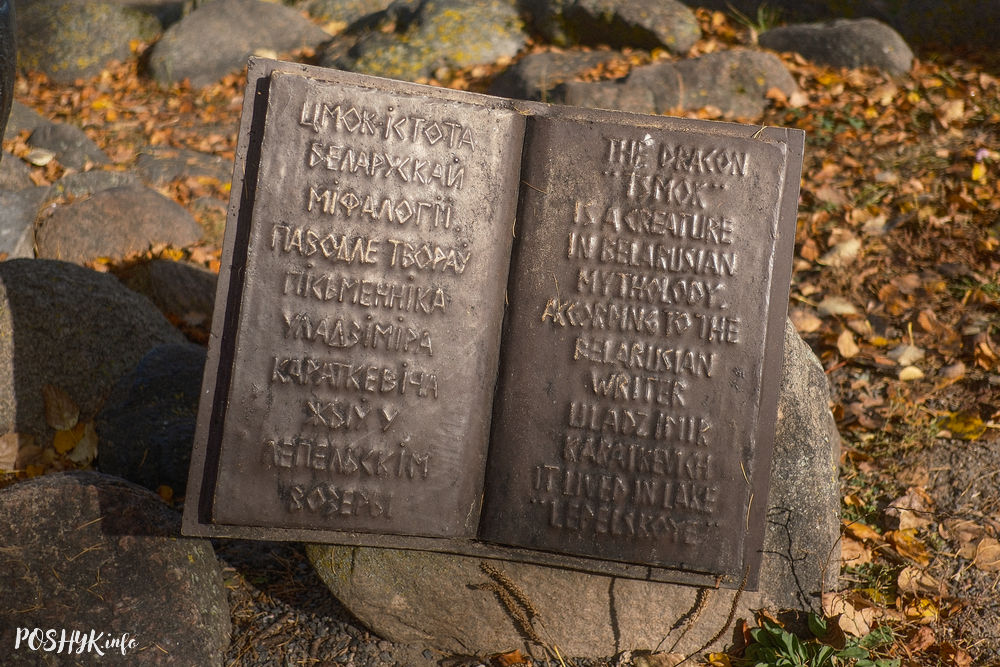 ЦМОК-ІСТОТА
БЕЛАРУСКАЙ
МІФАЛОГІІ.
ПАВОДЛЕ ТВОРАЎ
ПІСЬМЕННІКА
УЛАДЗІМІРА
КАРАТКЕВІЧА
ЖЫЎ У
ЛЕПЕЛЬСКІМ
ВОЗЕРЫ
THE DRAGON
"TSMOK"
IS A CREATURE
IN BELARUSIAN
MYTHOLODY.
ACCORDING TO THE
BELARUSIAN
WRITER
ULADZIMIR
KARATKEVICH
IT LIVED IN LAKE
"LEPELSKOYE"
POSHYK.info